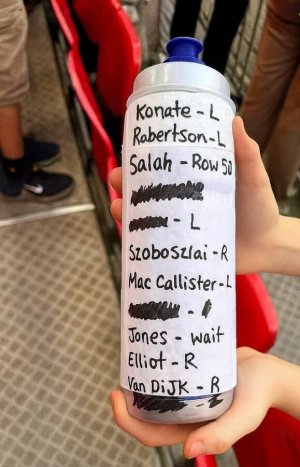 Konate - L
Robertson - L
Salah - Row 50
- L
Szoboszlai - R
Mac Callister - L
Jones - wait
Elliot - R
Van DiJK - R